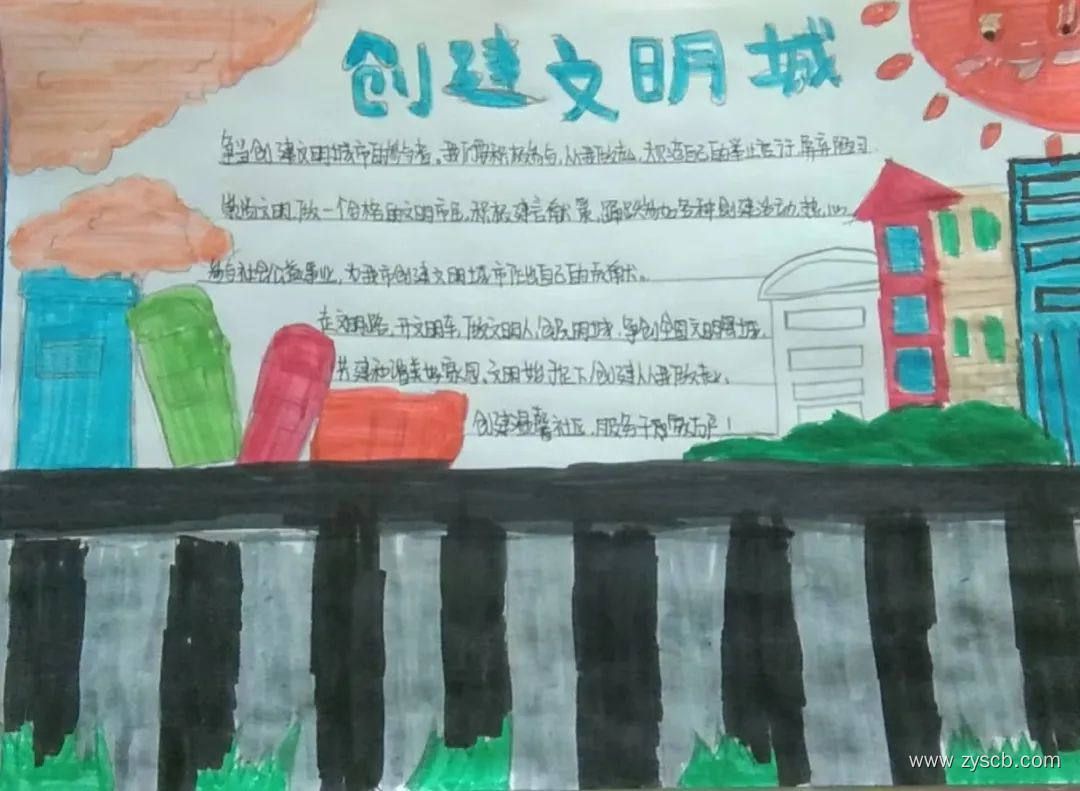 创建文明城
争当创建文明城市的参与者。我们要积极参与,从我做起,规范自己的举止言行,摒弃陋习
崇尚文明,做一个合格的文明市民,积极建言献策,踊跃参加各种创建活动,热心
参与社会公益事业,为我市创建文明城市作出自己的贡献。
走文明路、开文明车、做文明人、创文明城,争创全国文明城。
共建和谐美好家园、文明始于足下,创建从我做起。
创建温馨社区,服务千家万户!
www.zyscb.com